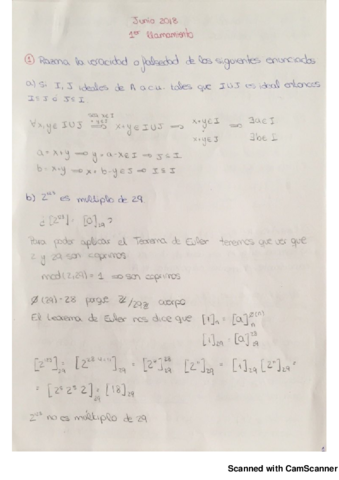 Junio 2018
1er llamamiento
① Razona la veracidad o falsedad de los siguientes enunciados
a) Si I, J ideales de A a.c.u. tales que I∪J es ideal entonces
I⊂J ó J⊂I
∀x,y∈I∪J ⟹ x+y∈I∪J ⟹ x+y∈I ⟹ ∃a∈I
x+y∈J ∃b∈J
a = x+y ⟹ y = a-x∈I ⟹ J⊂I
b = x+y ⟹ x = b-y∈J ⟹ I⊂J
es múltiplo de 29.
[0]₂₉?
Para poder aplicar el Teorema de Euler tenemos que ver que
2 y 29 son coprimos
mcd(2,29) = 1 ⟹ son coprimos
∅(29) = 28 cuerpo
El teorema de Euler nos dice que [1]ₙ = [a]ₙ
[1]₂₉ = [a]₂₉²⁸
= [18]₂₉
no es múltiplo de 29
Scanned with CamScanner